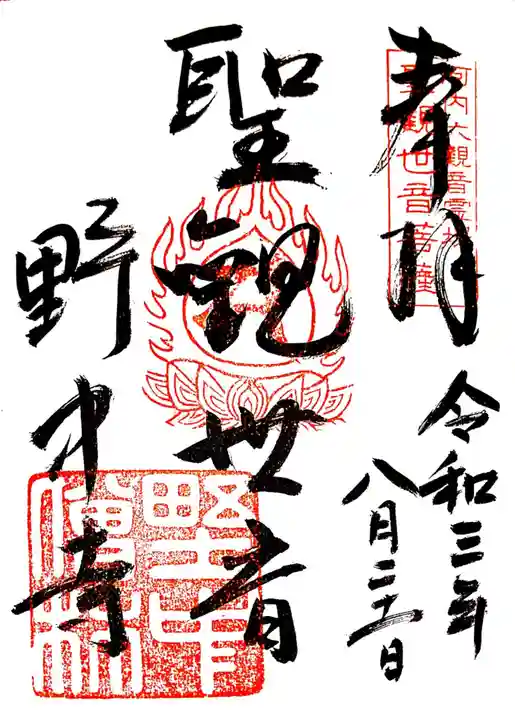 奉拝
河内六観音霊場
聖観世音菩薩
令和三年
八月二十一日
聖観世音
野中寺
野中
僧林